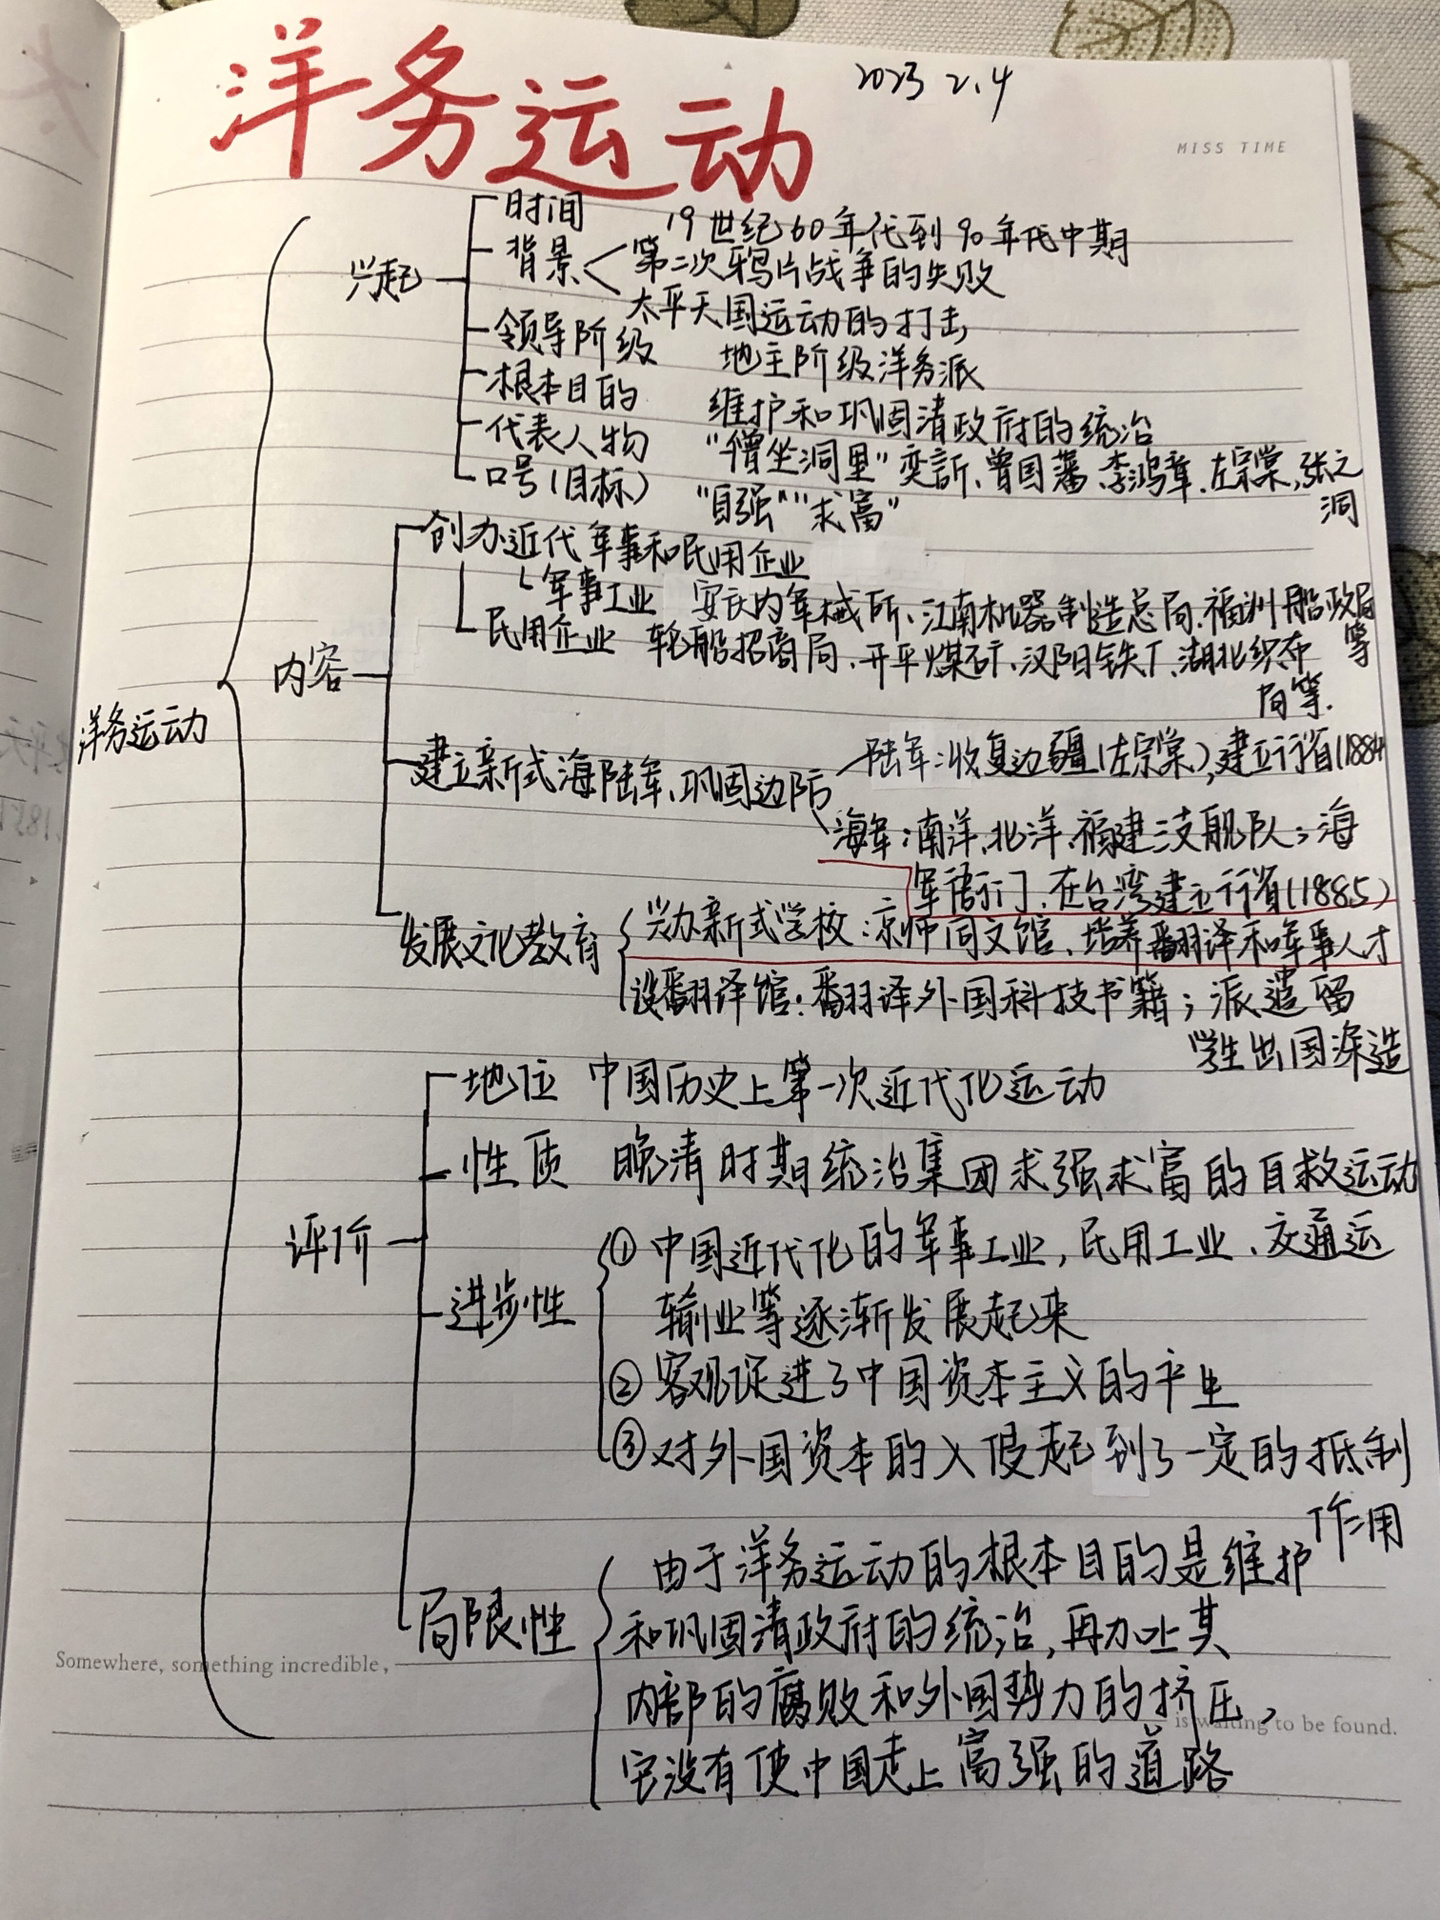 洋务运动
2023 2.4
MISS TIME
时间 19世纪60年代到90年代中期
兴起 背景 第二次鸦片战争的失败
太平天国运动的打击
领导阶级 地主阶级洋务派
根本目的 维护和巩固清政府的统治
代表人物 “曾坐洞里”奕訢、曾国藩、李鸿章、左宗棠、张之
洞
口号(目标) “自强”“求富”
创办近代军事和民用企业
军事工业 安庆内军械所、江南机器制造总局、福州船政局
等
民用企业 轮船招商局、开平煤矿、汉阳铁厂、湖北织布
局等.
内容
洋务运动
建立新式海陆军、巩固边防 陆军:收复边疆(左宗棠),建立行省(1884
海军:南洋、北洋、福建三支舰队;海
军衙门、在台湾建立行省(1885)
发展文化教育 兴办新式学校:京师同文馆、培养翻译和军事人才
设翻译馆:翻译外国科技书籍;派遣留
学生出国深造
地位 中国历史上第一次近代化运动
性质 晚清时期统治集团求强求富的自救运动
评价
进步性 ①中国近代化的军事工业,民用工业、交通运
输业等逐渐发展起来
②客观促进了中国资本主义的产生
③对外国资本的入侵起到了一定的抵制
作用
局限性 由于洋务运动的根本目的是维护
和巩固清政府的统治,再加上其
内部的腐败和外国势力的挤压,
它没有使中国走上富强的道路
Somewhere, something incredible,
is waiting to be found.